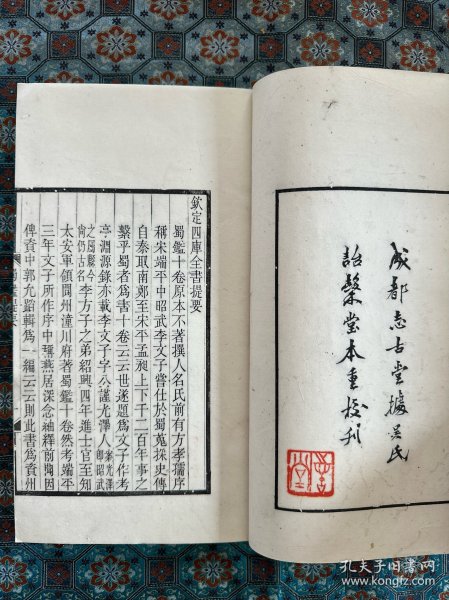 成都志古堂據吴氏
詒檠堂本重挍刋
欽定四庫全書提要
蜀鑑十卷原本不著撰人名氏前有方孝孺序
稱宋端平中昭武李文子嘗仕於蜀蒐採史傳
自秦取南鄭至宋平孟昶上下千二百年事之
繫乎蜀者爲書十卷云云世遂題爲文子作考
亭淵源錄亦載李文子字公謹光澤人案光澤卽昭武
之屬縣今尚仍古名李方子之弟紹興四年進士官至知
太安軍領閬州潼川府著蜀鑑十卷然考端平
三年文子所作序中稱燕居深念紬繹前聞因
俾資中郭允蹈輯爲一編云云則此書爲資州
孔夫子旧书网